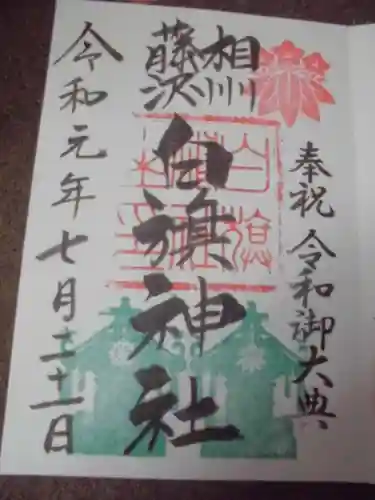 奉祝 令和御大典
相州
藤沢
白旗神社
令和元年七月二十一日